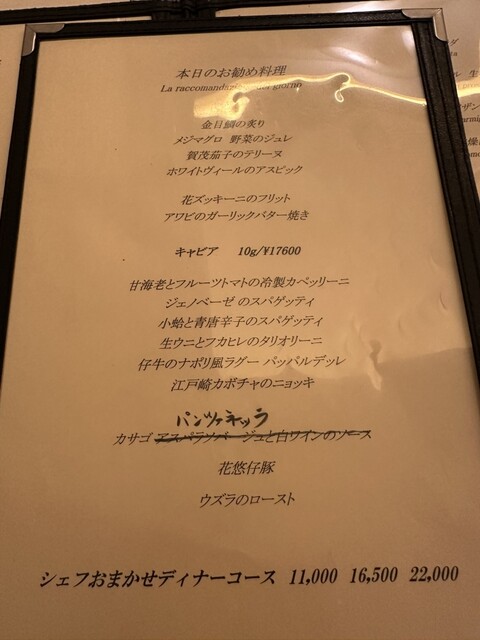 本日のお勧め料理
La raccomandazione del giorno
金目鯛の炙り
メジマグロ 野菜のジュレ
賀茂茄子のテリーヌ
ホワイトヴィールのアスピック
花ズッキーニのフリット
アワビのガーリックバター焼き
キャビア 10g/¥17600
甘海老とフルーツトマトの冷製カペッリーニ
ジェノベーゼ のスパゲッティ
小蛤と青唐辛子のスパゲッティ
生ウニとフカヒレのタリオリーニ
仔牛のナポリ風ラグー パッパルデッレ
江戸崎カボチャのニョッキ
パンツァネッラ
カサゴ アスパラソバージュと白ワインのソース
花悠仔豚
ウズラのロースト
シェフおまかせディナーコース 11,000 16,500 22,000